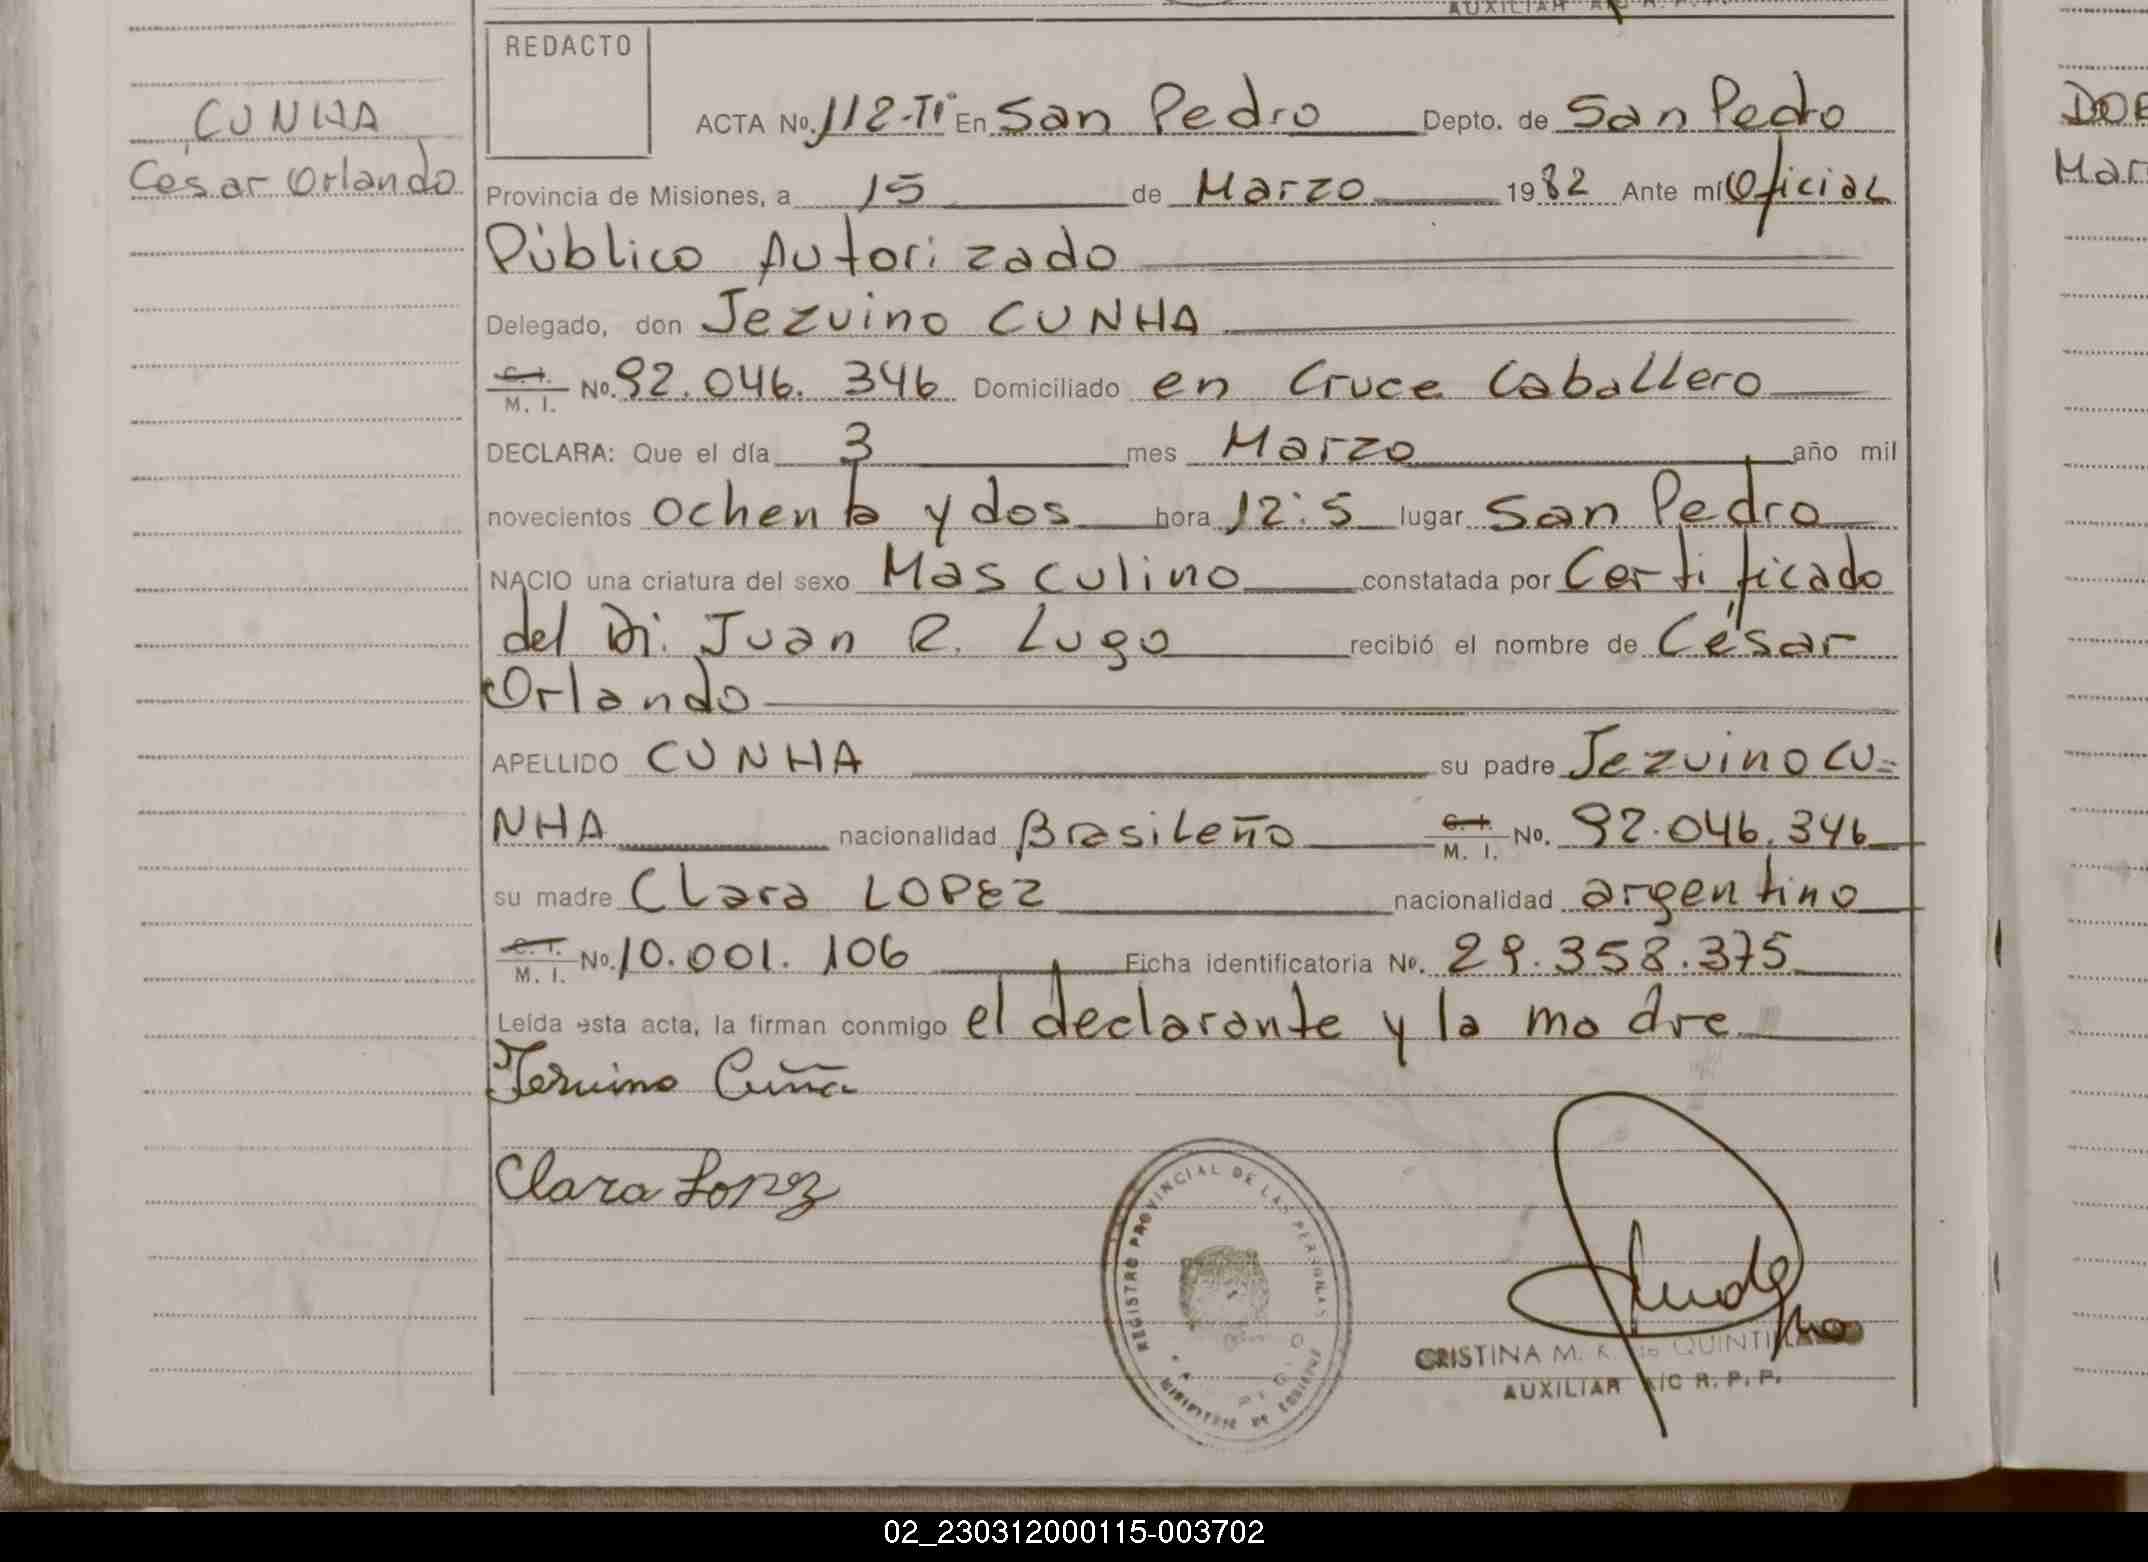 AUXILIAR A/C R. P. P.
REDACTO
CUNHA
César Orlando
ACTA No. 112-Tº En San Pedro Depto. de San Pedro
Provincia de Misiones, a 15 de Marzo 1982 Ante mí Oficial
Público Autorizado
Delegado, don Jezuino CUNHA
C. I. / M. I. No. 92.046.346 Domiciliado en Cruce Caballero
DECLARA: Que el día 3 mes Marzo año mil
novecientos ochenta y dos hora 12:5 lugar San Pedro
NACIO una criatura del sexo Masculino constatada por Certificado
del Dr. Juan R. Lugo recibió el nombre de César
Orlando
APELLIDO CUNHA su padre Jezuino CU=
NHA nacionalidad Brasileño C. I. / M. I. No. 92.046.346
su madre Clara LOPEZ nacionalidad argentino
C. I. / M. I. No. 10.001.106 Ficha identificatoria No. 29.358.375
Leída esta acta, la firman conmigo el declarante y la madre
Jesuino Cuña
Clara Lopez
REGISTRO PROVINCIAL DE LAS PERSONAS
MINISTERIO DE GOBIERNO
CRISTINA M. R. de QUINTI
AUXILIAR A/C R. P. P.
Mar
02_230312000115-003702